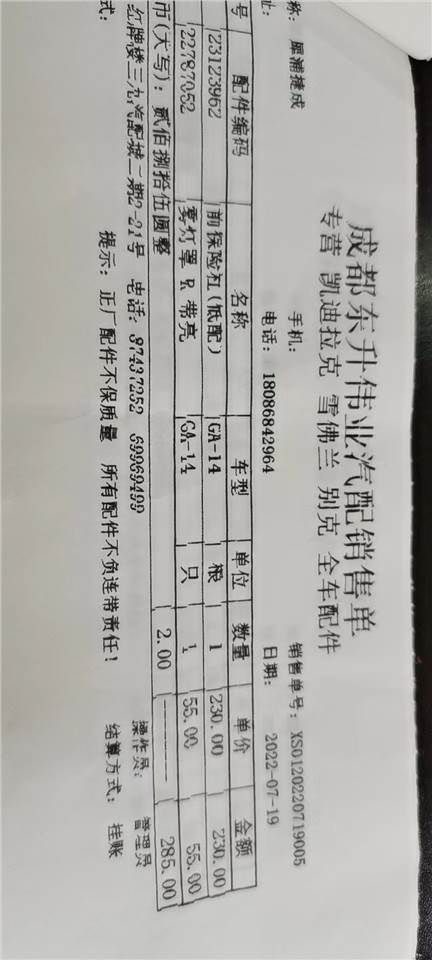 成都东升伟业汽配销售单
专营 凯迪拉克 雪佛兰 别克 全车配件
称: 犀浦捷成 手机: 销售单号: XS0120220719005
址: 电话: 18086842964 日期: 2022-07-19
号 配件编码 名称 车型 单位 数量 单价 金额
23123962 前保险杠(低配) GA-14 根 1 230.00 230.00
22787052 雾灯罩 R 带亮 GA-14 只 1 55.00 55.00
2.00 285.00
币(大写): 贰佰捌拾伍圆整
红牌楼三九汽配城二期2-21号 电话: 87437252 69969499 操作员: 管理员
式: 提示: 正厂配件不保质量 所有配件不负连带责任! 结算方式: 挂账